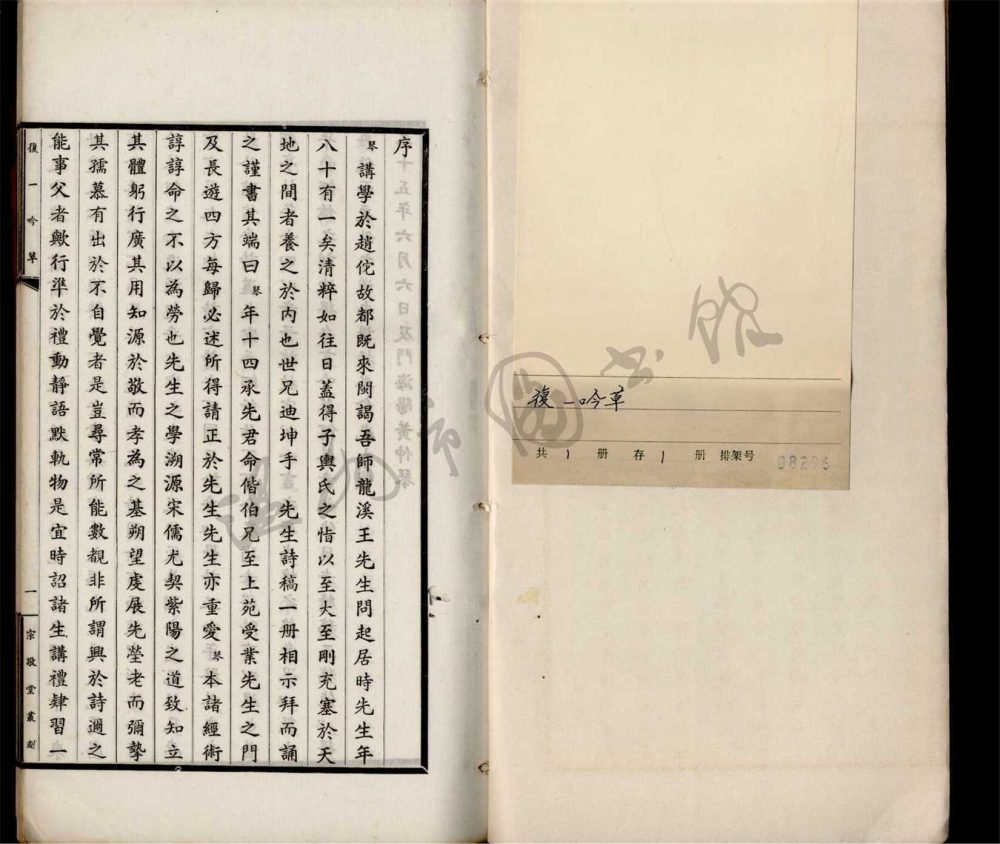 復一吟草
共 1 册 存 1 册 排架号 08296
序
琴講學於趙佗故都既來閩謁吾師龍溪王先生問起居時先生年
八十有一矣清粹如往日蓋得子輿氏之恉以至大至剛充塞於天
地之間者養之於內也世兄迪坤手 先生詩稿一册相示拜而誦
之謹書其端曰琴年十四承先君命偕伯兄至上苑受業先生之門
及長遊四方每歸必述所得請正於先生先生亦重愛琴本諸經術
諄諄命之不以為勞也先生之學溯源宋儒尤契紫陽之道致知立
其體躬行廣其用知源於敬而孝為之基朔望虔展先塋老而彌摯
其孺慕有出於不自覺者是豈尋常所能數覩非所謂興於詩邇之
能事父者歟行準於禮動靜語默軌物是宜時詔諸生講禮肄習一
復一吟草
一
宗敬堂叢刻
溫州市圖書館